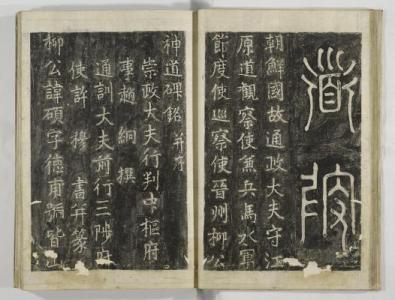 道
朝鮮國故通政大夫守江
原道觀察使兼兵馬水軍
節度使巡察使晉州柳公
神道碑銘 并序
崇政大夫行判中樞府
事趙絅撰
通訓大夫前行三陟府
使許穆 書并篆
柳公諱碩字德甫號皆江